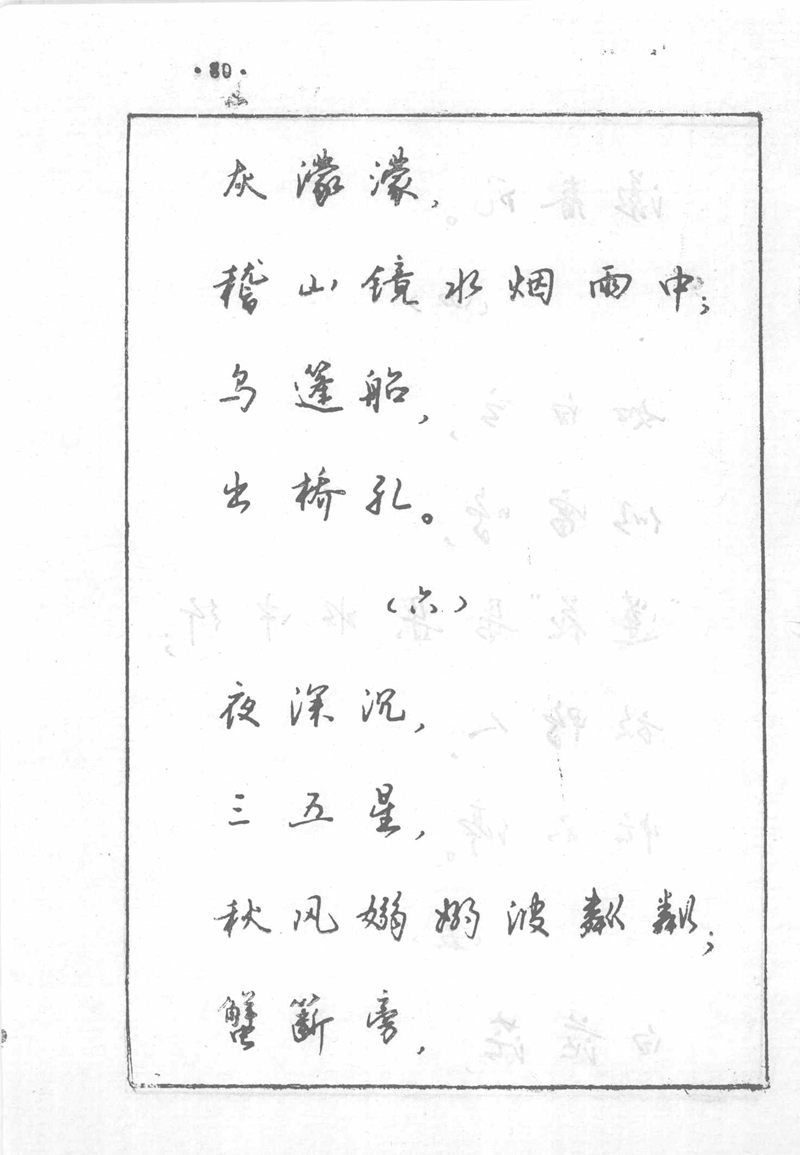 ·80·
灰濛濛，
稽山镜水烟雨中；
乌篷船，
出桥孔。
（六）
夜深沉，
三五星，
秋风嫋嫋波粼粼；
蟹簖旁，